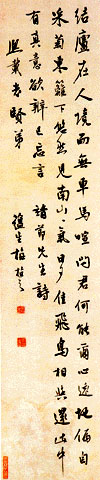 結廬在人境而無車馬喧問君何能爾心遠地偏自
采菊東籬下悠然見南山〻氣日夕佳飛鳥相與還此中
有真意欲辯已忘言 靖節先生詩
賢弟